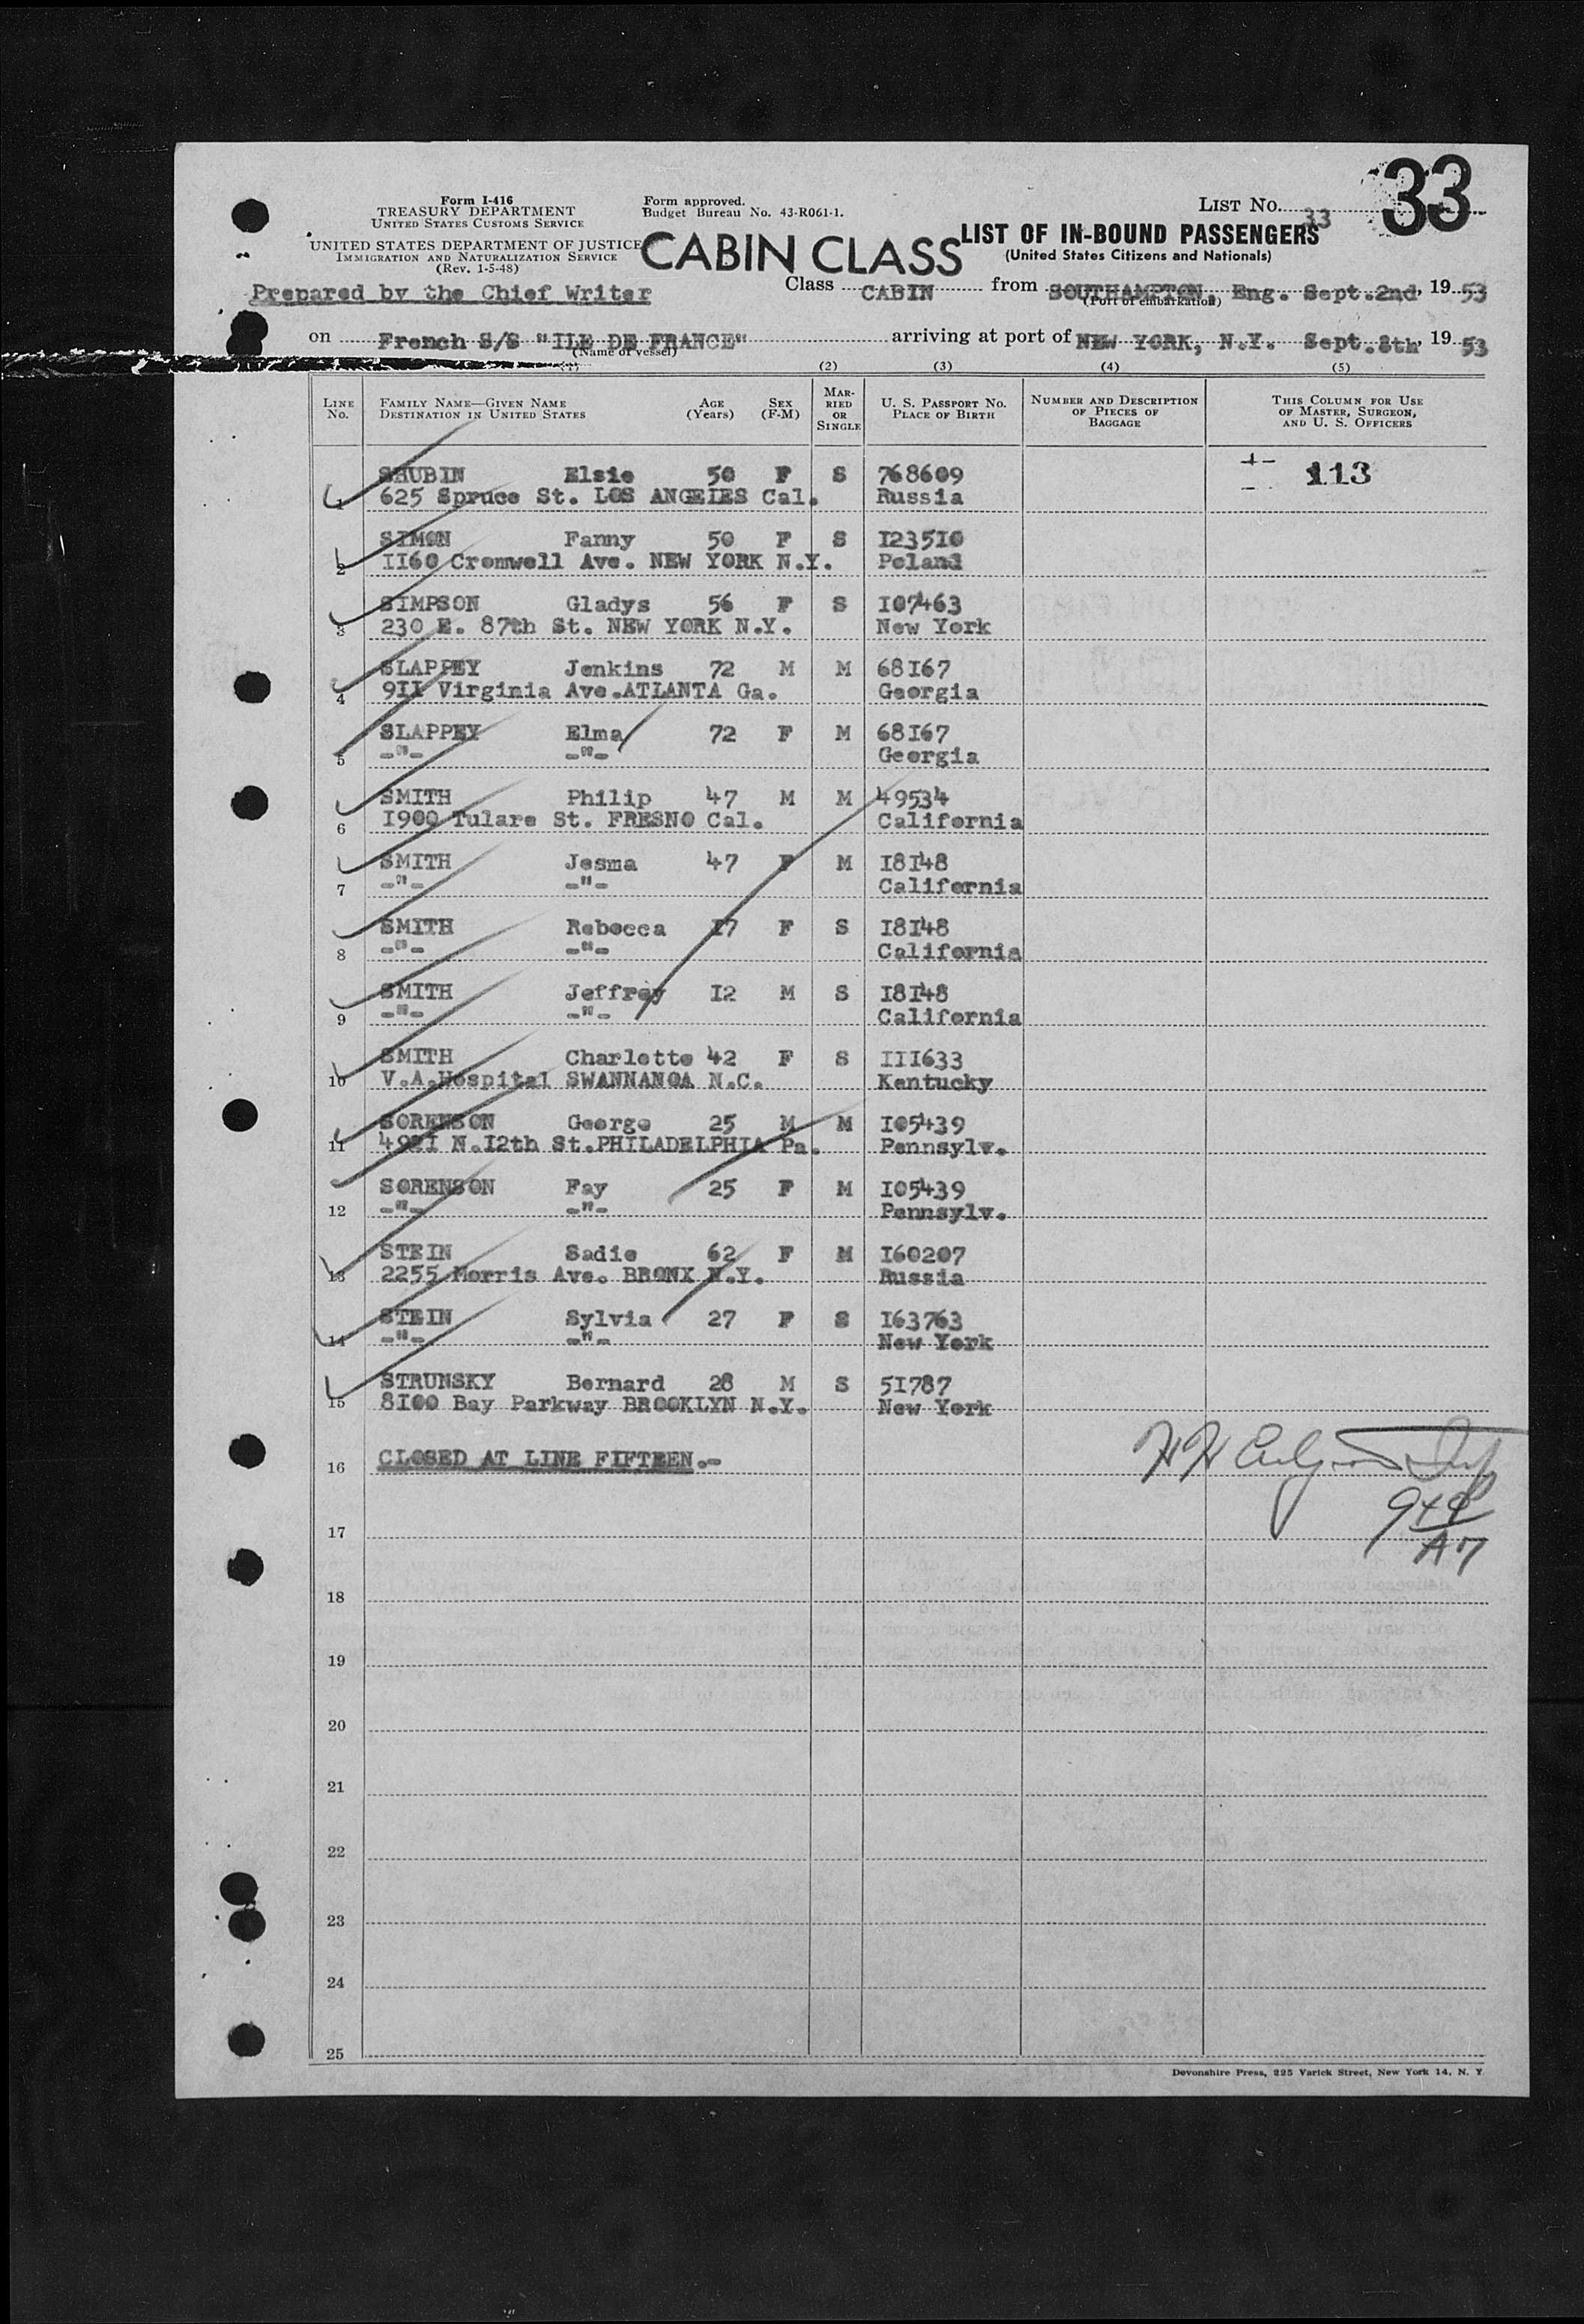 33
Form I-416
TREASURY DEPARTMENT
UNITED STATES CUSTOMS SERVICE
UNITED STATES DEPARTMENT OF JUSTICE
IMMIGRATION AND NATURALIZATION SERVICE
(Rev. 1-5-48)
Form approved.
Budget Bureau No. 43-R061-1.
LIST No. 33
CABIN CLASS
LIST OF IN-BOUND PASSENGERS
(United States Citizens and Nationals)
Prepared by the Chief Writer
Class CABIN from SOUTHAMPTON, Eng. Sept.2nd, 19 53
(Port of embarkation)
on French S/S "ILE DE FRANCE" arriving at port of NEW YORK, N.Y. Sept.8th, 19 53
(Name of vessel)
(1) (2) (3) (4) (5)
LINE No. FAMILY NAME—GIVEN NAME DESTINATION IN UNITED STATES AGE (Years) SEX (F-M) MARRIED OR SINGLE U. S. PASSPORT NO. PLACE OF BIRTH NUMBER AND DESCRIPTION OF PIECES OF BAGGAGE THIS COLUMN FOR USE OF MASTER, SURGEON, AND U. S. OFFICERS
SHUBIN Elsie 50 F S 768609 113
1 625 Spruce St. LOS ANGELES Cal. Russia
SIMON Fanny 50 F S I23510
2 II60 Cromwell Ave. NEW YORK N.Y. Poland
SIMPSON Gladys 56 F S I07463
3 230 E. 87th St. NEW YORK N.Y. New York
SLAPPEY Jenkins 72 M M 68I67
4 9II Virginia Ave.ATLANTA Ga. Georgia
SLAPPEY Elma 72 F M 68I67
5 -"- -"- Georgia
SMITH Philip 47 M M 49534
6 I900 Tulare St. FRESNO Cal. California
SMITH Jesma 47 F M I8I48
7 -"- -"- California
SMITH Rebecca I7 F S I8I48
8 -"- -"- California
SMITH Jeffrey I2 M S I8I48
9 -"- -"- California
SMITH Charlotte 42 F S III633
10 V.A.Hospital SWANNANOA N.C. Kentucky
SORENSON George 25 M M I05439
11 492I N.I2th St.PHILADELPHIA Pa. Pennsylv.
SORENSON Fay 25 F M I05439
12 -"- -"- Pennsylv.
STEIN Sadie 62 F M I60207
13 2255 Morris Ave. BRONX N.Y. Russia
STEIN Sylvia 27 F S I63763
14 -"- -"- New York
STRUNSKY Bernard 28 M S 5I787
15 8I00 Bay Parkway BROOKLYN N.Y. New York
16 CLOSED AT LINE FIFTEEN.-
17
18
19
20
21
22
23
24
25
Devonshire Press, 225 Varick Street, New York 14, N. Y.